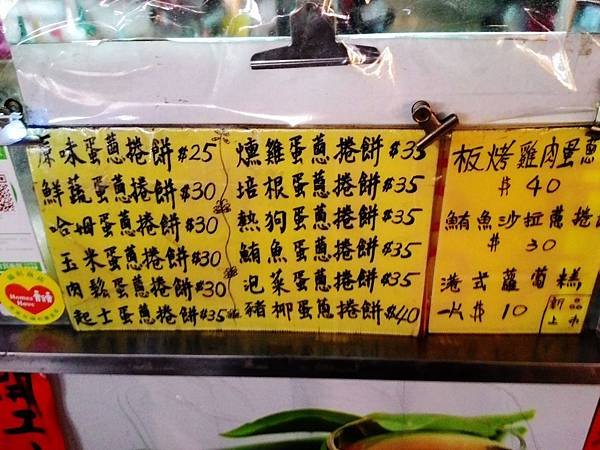 原味蛋蔥捲餅$25
鮮蔬蛋蔥捲餅$30
哈姆蛋蔥捲餅$30
玉米蛋蔥捲餅$30
肉鬆蛋蔥捲餅$30
起士蛋蔥捲餅$35
燻雞蛋蔥捲餅$35
培根蛋蔥捲餅$35
熱狗蛋蔥捲餅$35
鮪魚蛋蔥捲餅$35
泡菜蛋蔥捲餅$35
豬柳蛋蔥捲餅$40
板烤雞肉蛋蔥
$40
鮪魚沙拉蔥捲
$30
港式蘿蔔糕
一片$10
新品
上市